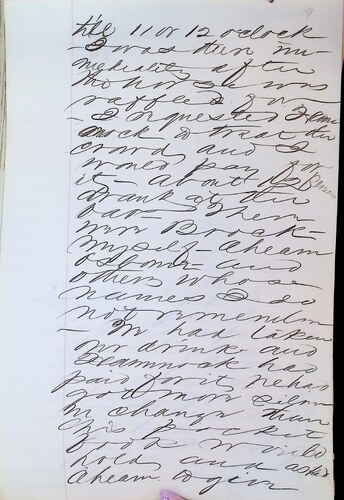 till 11 or 12 oclock
I was then im-
mediately after
the horse was
raffled for
- I requested Ham
mock to treat the
crowd and I
would pay for
it - about 12
drank at the
bar - There
were Brock -
myself - Aheam
Osborne and
others whose
names I do
not remember
- We had taken
our drinks and
Hammock had
paid for it he had
got more silver
in change than
his pocket
book would
hold and asked
Aheam to give